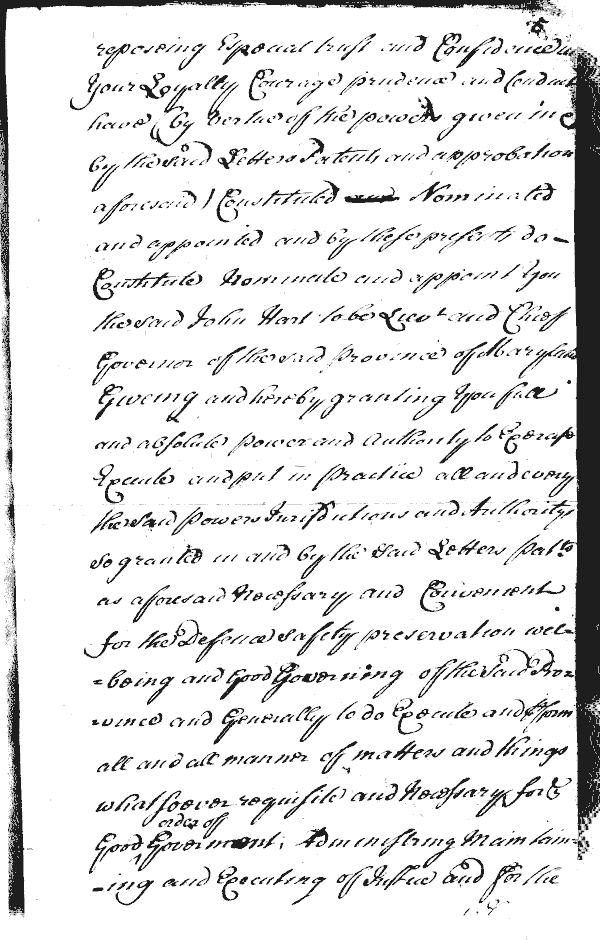 5
reposeing Especial trust and Confidence in
Your Loyalty Courage prudence and Conduct
have (by Vertue of the powers given in
by the said Letters Patents and approbation
aforesaid) Constituted and Nominated
and appointed and by these presents do -
Constitute Nominate and appoint You
the said John Hart to be Lieut and Chief
Governor of the said Province of Maryland
Giveing and hereby granting You full
and absolute power and Authority to Exercise
Execute and put in practice all and every
the said powers Jurisdictions and Authoritys
So granted in and by the said Letters Patts
as aforesaid Necessary and Convenient
for the Defence Safety preservation wel=
=being and Good Governing of the said Pro=
=vince and Generally to do Execute and pform
all and all manner of matters and things
whatsoever requisite and Necessary for
order of
Good Government, Administring Maintain=
=ing and Executing of Justice and for the